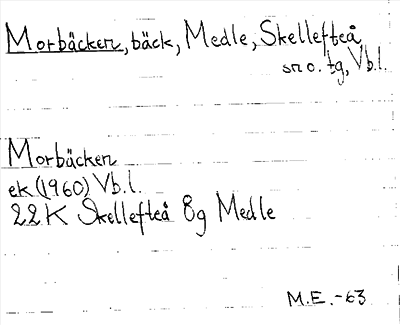 Morbäcken, bäck, Medle, Skellefteå
sn o. tg, Vb.l.
Morbäcken
ek (1960) Vb.l.
22K Skellefteå 8g Medle
M.E.-63